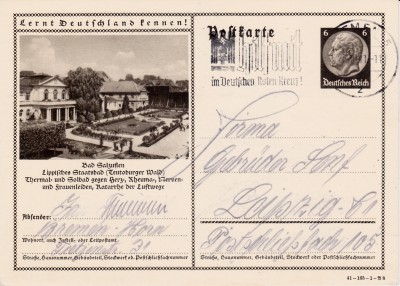 Lernt Deutschland kennen!
Postkarte
im Deutschen Roten Kreuz!
6 6
Deutsches Reich
Bad Salzuflen
Lippisches Staatsbad (Teutoburger Wald)
Thermal- und Solbad gegen Herz-, Rheuma-, Nerven-
und Frauenleiden, Katarrhe der Luftwege
Absender:
Bremen-Horn
31
Wohnort, auch Zustell- oder Leitpostamt
Straße, Hausnummer, Gebäudeteil, Stockwerk od. Postschließfachnummer
Firma
Gebrüder Senf
Leipzig-C1
Postschliessfach 105
Straße, Hausnummer, Gebäudeteil, Stockwerk oder Postschließfachnummer